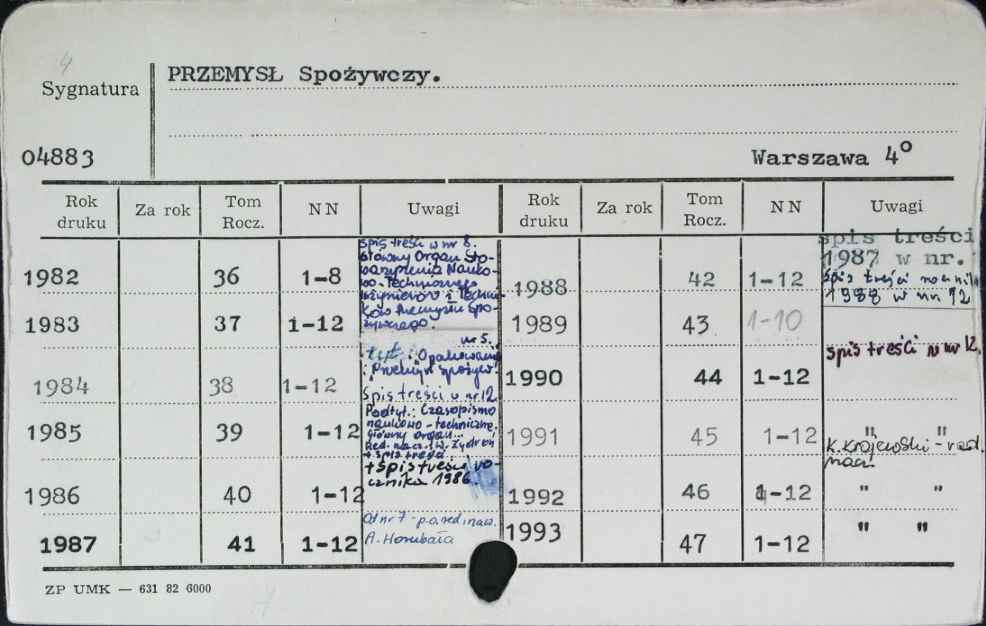 4
Sygnatura
PRZEMYSŁ Spożywczy.
04883
Warszawa 4°
Rok druku Za rok Tom Rocz. NN Uwagi Rok druku Za rok Tom Rocz. NN Uwagi
1982 36 1-8
spis treści w nr 8.
Główny Organ Sto-
warzyszenia Nauko-
wo-Technicznego
Inżynierów i Techni-
ków Przemysłu Spo-
żywczego.
1983 37 1-12
nr 5.
tyt.: Opakowanie
Przemysł spożyw.
1984 38 1-12
Spis treści w nr 12
Podtyt.: Czasopismo
naukowo-techniczne.
główny organ...
Red. nacz. W. Żydroń
+ spis treści
1985 39 1-12
+ spis treści ro-
cznika 1986.
1986 40 1-12
1987 41 1-12
Od nr 7 - p.o. red. nacz.
A. Horubała
spis treści
1987 w nr.
spis treści
1988 w nr 12
1988 42 1-12
1989 43 1-10
spis treści w nr 12.
1990 44 1-12
1991 45 1-12 " "
K. Krajewski - red.
nacz.
1992 46 1-12 " "
1993 47 1-12 " "
ZP UMK — 631 82 6000